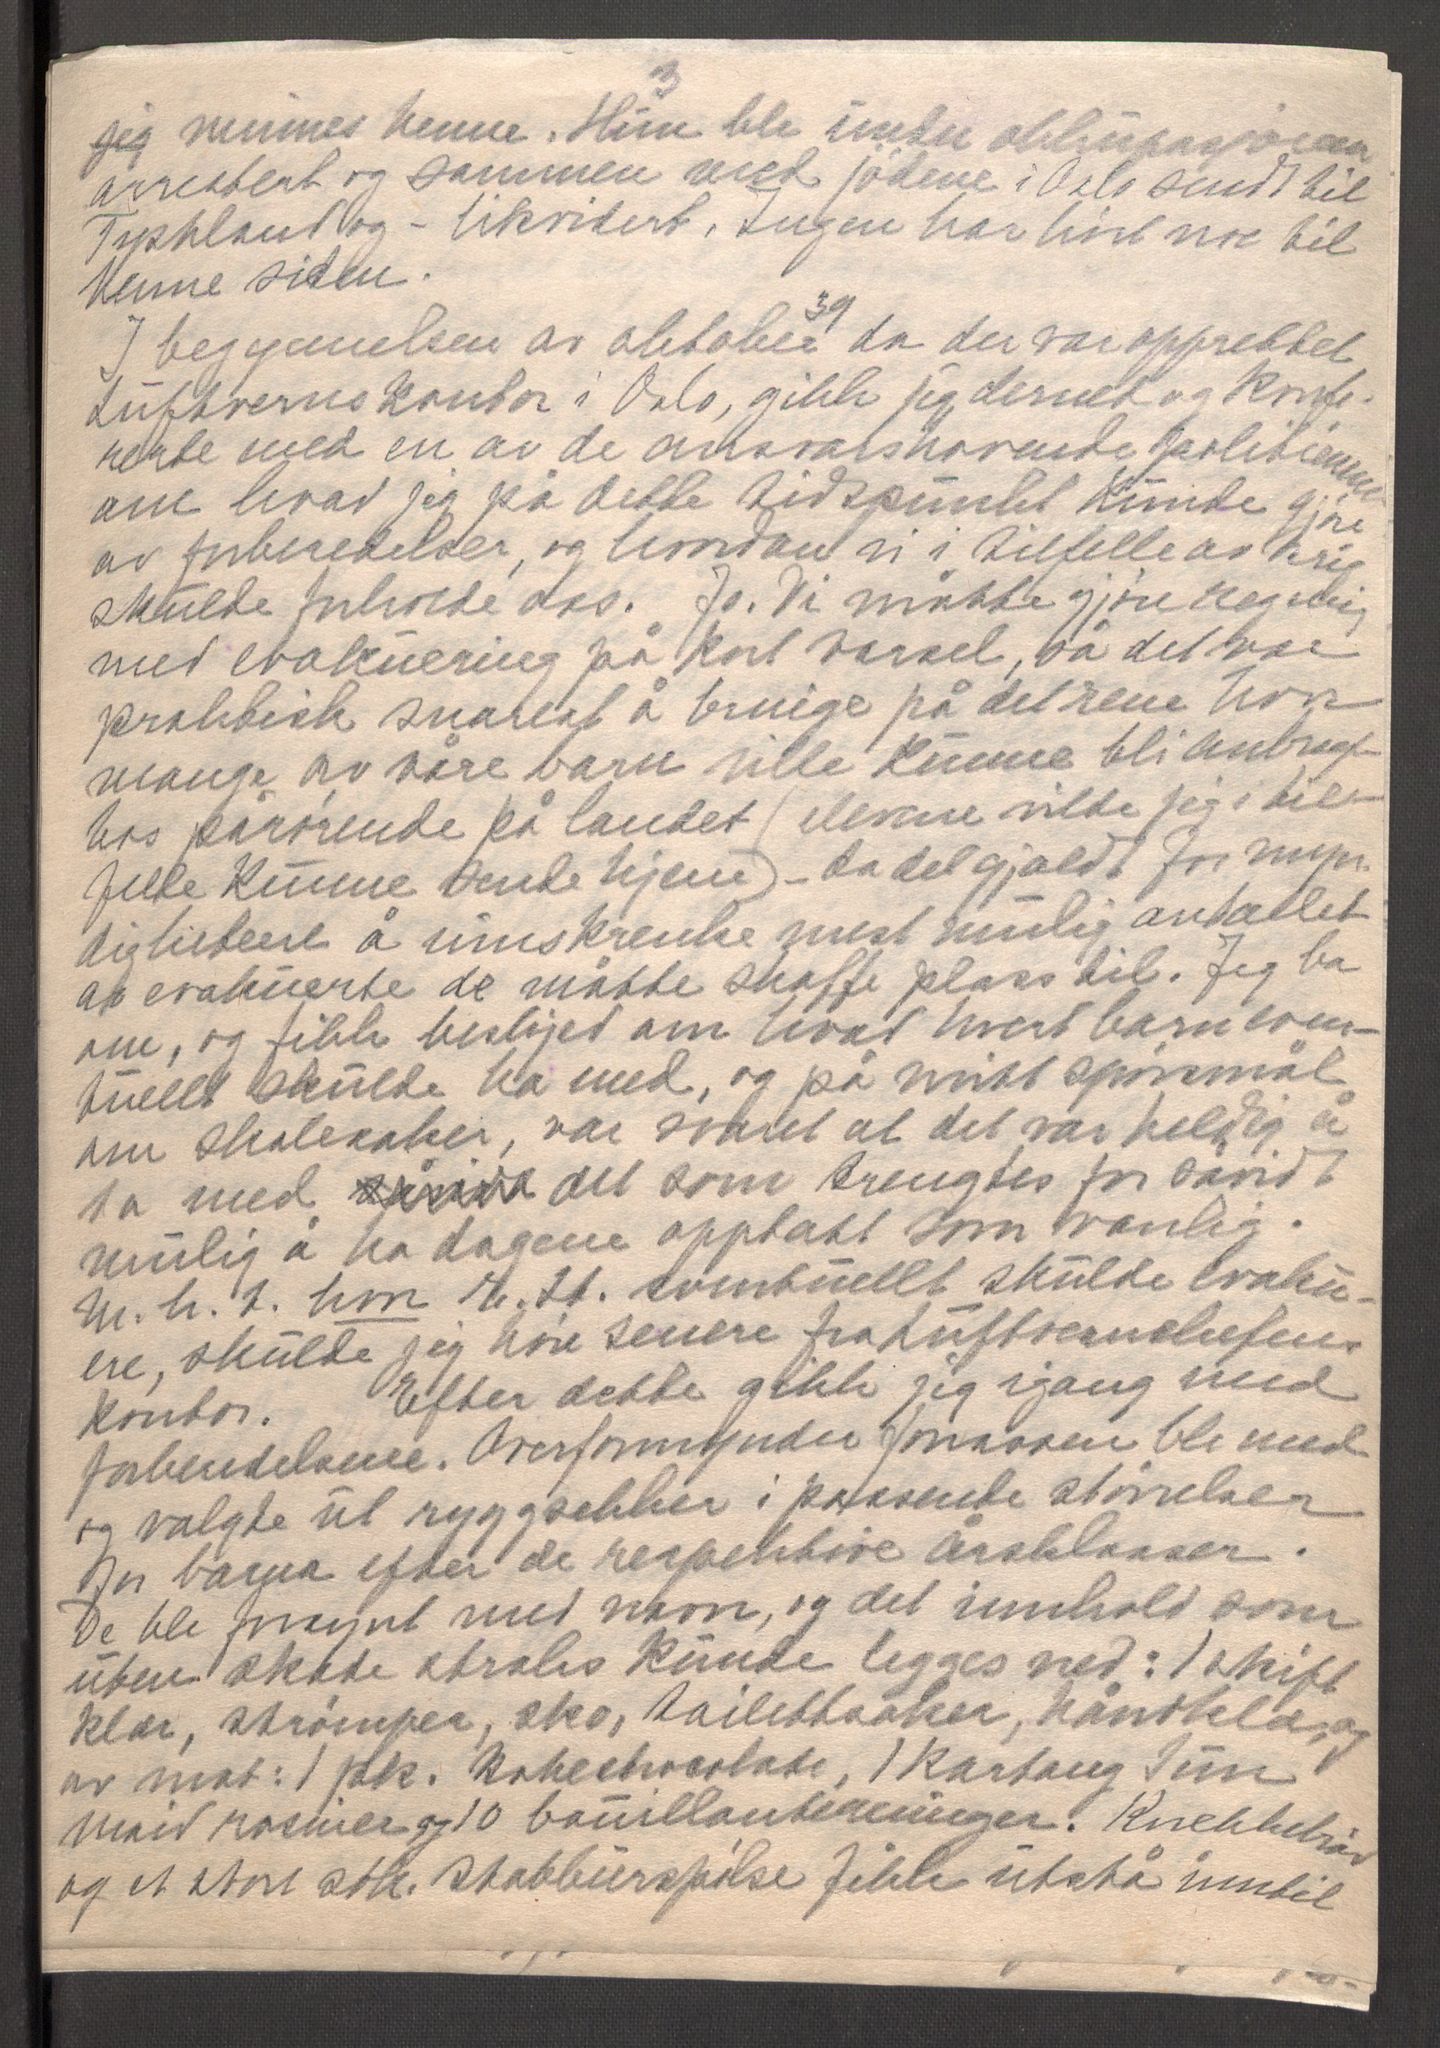 3
jeg minnes henne. Hun ble under okkupasjonen
arrestert og sammen med jödene i Oslo sendt til
Tyskland og - likvidert. Ingen har hört noe til
henne siden.
I begynnelsen av oktober 39 da der var opprettet
Luftvernskontor i Oslo, gikk jeg derned og konfe-
rerte med en av de ansvarshavende politimenn
om hvad jeg på dette tidspunkt kunde gjöre
av forberedelser, og hvordan vi i tilfelle av krig
skulde forholde oss. Jo. Vi måtte gjöre regning
med evakuering på kort varsel, så det var
praktisk snarest å bringe på det rene hvor
mange av våre barn ville kunne bli anbragt
hos pårörende på landet (elevene vilde jeg i til-
felle kunne sende hjem) - da det gjaldt for myn-
dighetene å innskrenke mest mulig antallet
av evakuerte de måtte skaffe plass til. Jeg ba
om, og fikk beskjed om hvad hvert barn even-
tuellt skulde ha med, og på mitt spörsmål
om skolesaker, var svaret at det var heldig å
ta med det som trengtes for såvidt
mulig å ha dagene opptatt som vanlig.
M. h. t. hvor eventuellt skulde evaku-
ere, skulde jeg höre senere fra Luftvernchefens
kontor. Efter dette gikk jeg igang med
forberedelsene. Overformynder Jonassen ble med
og valgte ut ryggsekker i passende störrelser
for barna efter de respektive årsklasser.
De ble forsynt med navn, og det innhold som
uten skade straks kunde legges ned: 1 skift
klær, strömper, sko, toilettsaker, håndklæ, og
av mat: 1 pk. kokechocolate, 1 kartong Sun
maid rosiner og 10 bouillonterninger. Knekkebröd
og et stort stk. stabburspölse fikk utstå inntil